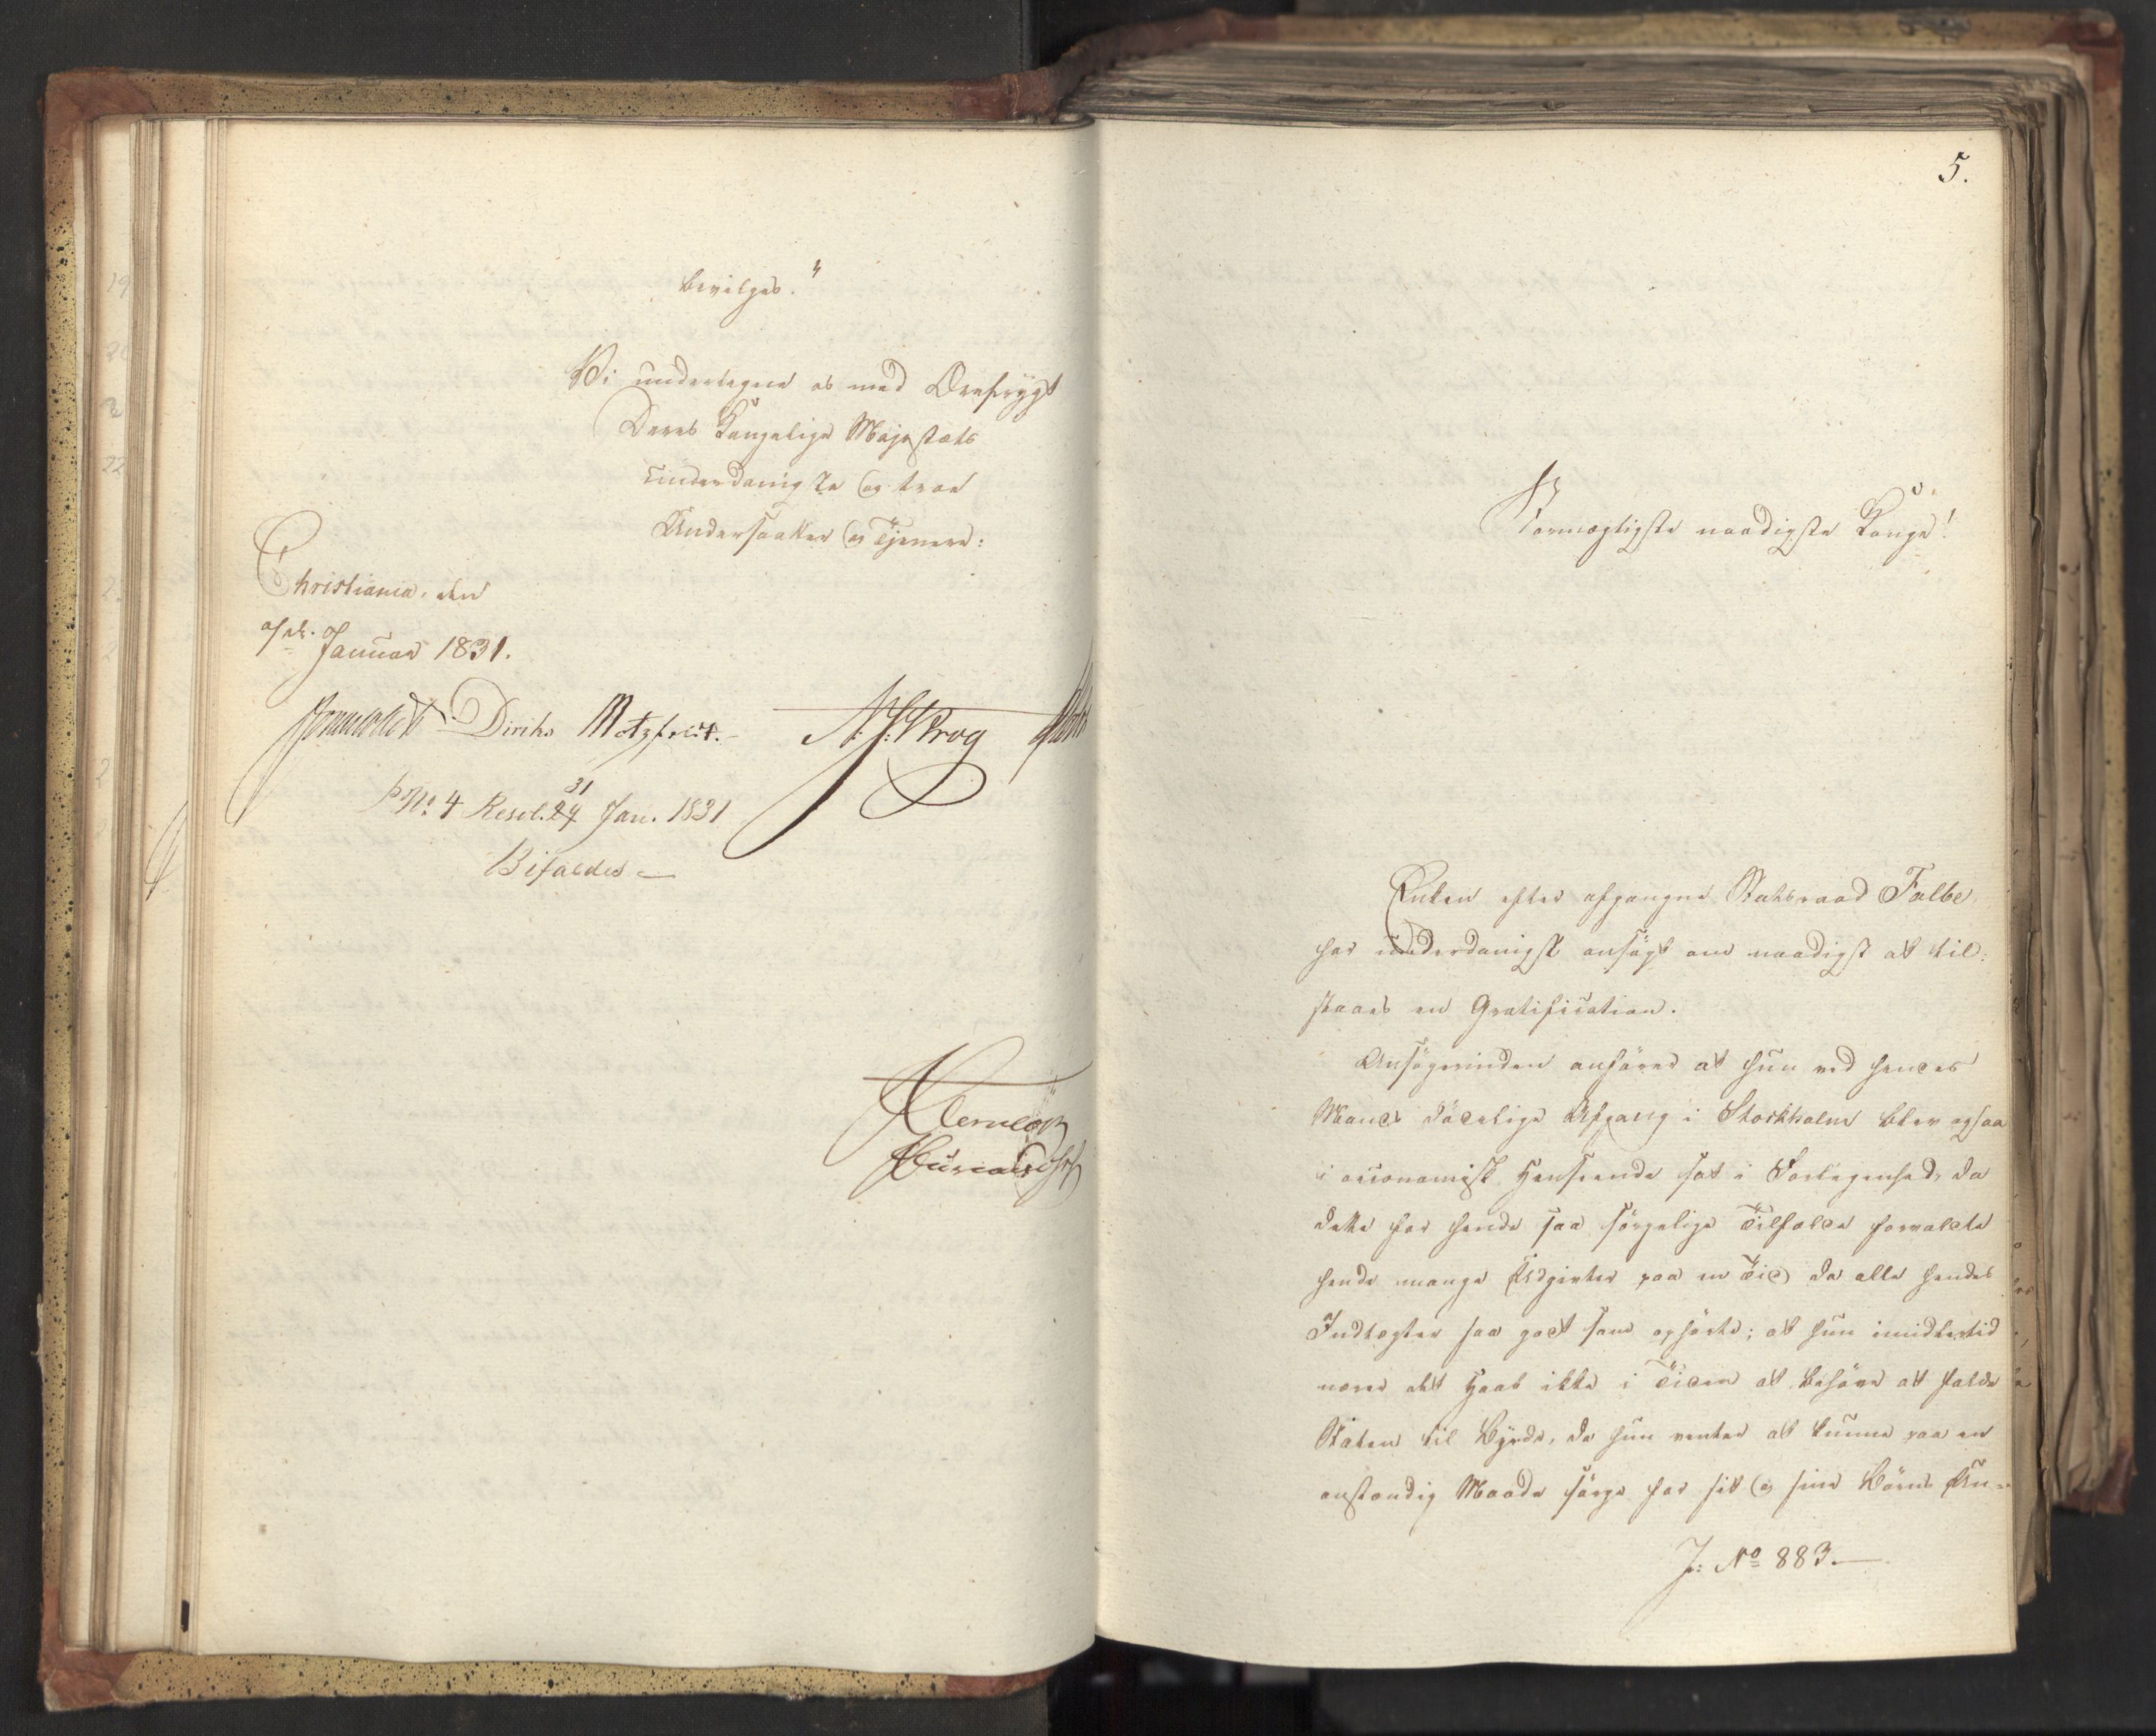 bevilges."
Vi undertegne os med Ærefrygt
Deres Kongelige Majestæts
underdanigste og troe
Undersaatter og Tjenere:
Christiania, den
7de Januar 1831.
Sommerhielm Diriks Motzfeldt. N: J: Krog
No. 4 Resol. 24 31 Jan. 1831
Bifaldes —
5.
Stormægtigste naadigste Konge!
Enken efter afgangne Statsraad Falbe
har underdanigst ansøgt om naadigst at til-
staaes en Gratification.
Ansøgerinden anfører at hun ved hendes
Mands dødelige Afgang i Stockholm blev ogsaa
i oeconomisk Henseende sat i Forlegenhed, da
dette for hende saa sørgelige Tilfælde forvoldte
hende mange Udgivter paa en Tid da alle hendes
Indtægter saa godt som ophørte; at hun imidlertid
nærer det Haab ikke i Tiden at behøve at falde
Staten til Byrde, da hun venter at kunne paa en
anstændig Maade sørge for sit og sine Børns Un-
J: No 883. —